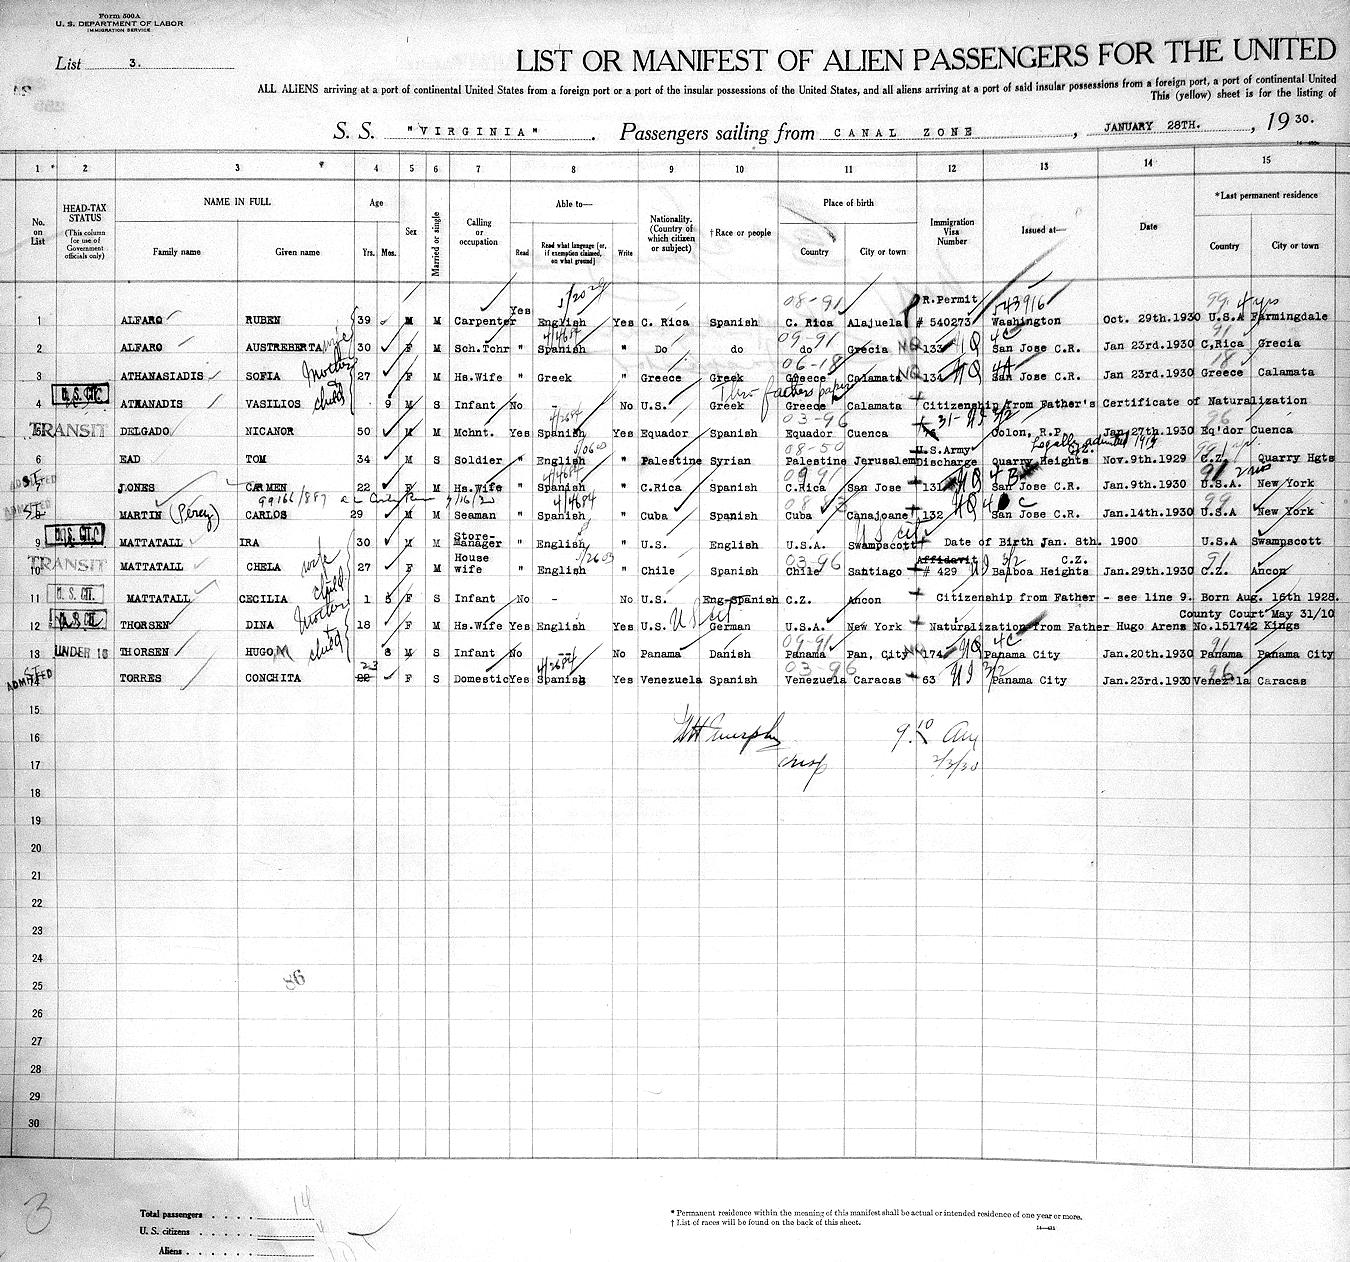 Form 500A
U. S. DEPARTMENT OF LABOR
IMMIGRATION SERVICE
List 3.
LIST OR MANIFEST OF ALIEN PASSENGERS FOR THE UNITED
ALL ALIENS arriving at a port of continental United States from a foreign port or a port of the insular possessions of the United States, and all aliens arriving at a port of said insular possessions from a foreign port, a port of continental United
This (yellow) sheet is for the listing of
S. S. "VIRGINIA" . Passengers sailing from CANAL ZONE , JANUARY 28TH. , 19 30.
1 2 3 4 5 6 7 8 9 10 11 12 13 14 15
No. on List HEAD-TAX STATUS (This column for use of Government officials only) NAME IN FULL Family name Given name Age Yrs. Mos. Sex Married or single Calling or occupation Able to— Read Read what language [or, if exemption claimed, on what ground] Write Nationality. (Country of which citizen or subject) † Race or people Place of birth Country City or town Immigration Visa Number Issued at— Date *Last permanent residence Country City or town
5/20 29 08-91 R.Permit 543916 99 4 yrs
1 ALFARO RUBEN 39 M M Carpenter Yes English Yes C. Rica Spanish C. Rica Alajuela # 540273 Washington Oct. 29th.1930 U.S.A Farmingdale
wife 4/4684 09-91 NQ 4C 91
2 ALFARO AUSTREBERTA 30 F M Sch.Tchr " Spanish " Do do do Grecia 133 San Jose C.R. Jan 23rd.1930 C,Rica Grecia
Mother 06-18 NQ 18
3 ATHANASIADIS SOFIA 27 F M Hs.Wife " Greek " Greece Greek Greece Calamata 134 San Jose C.R. Jan 23rd.1930 Greece Calamata
U.S. CIT. child Thro father's paper
4 ATHANADIS VASILIOS 9 M S Infant No - No U.S. Greek Greece Calamata Citizenship from Father's Certificate of Naturalization
TRANSIT 4/2684 03-96 31- 3/2 96
5 DELGADO NICANOR 50 M M Mchnt. Yes Spanish Yes Equador Spanish Equador Cuenca Colon, R.P. Jan.27th.1930 Eq'dor Cuenca
08-50 U.S.Army Legally admitted 1919
6 EAD TOM 34 M S Soldier " English " Palestine Syrian Palestine Jerusalem Discharge Quarry Heights Nov.9th.1929 C.Z. Quarry Hgts
ADMITTED 4/4684 09 91 91
7 JONES CARMEN 22 F M Hs.Wife " Spanish " C.Rica Spanish C.Rica San Jose 131 San Jose C.R. Jan.9th.1930 U.S.A. New York
ADMITTED 4/4684 08 83 4 C 99
8 MARTIN (Perez) CARLOS 29 M M Seaman " Spanish " Cuba Spanish Cuba Canajoane 132 San Jose C.R. Jan.14th.1930 U.S.A New York
U.S. CIT. U S cit
9 MATTATALL IRA 30 M M Store-Manager " English " U.S. English U.S.A. Swampscott Date of Birth Jan. 8th. 1900 U.S.A Swampscott
TRANSIT wife 03-96 Affidavit 3/2 C.Z. 91
10 MATTATALL CHELA 27 F M House wife " English " Chile Spanish Chile Santiago # 429 Balboa Heights Jan.29th.1930 C.Z. Ancon
U.S. CIT. child
11 MATTATALL CECILIA 1 5 F S Infant No - No U.S. Eng-Spanish C.Z. Ancon Citizenship from Father - see line 9. Born Aug. 16th 1928.
U.S. CIT. Mother U S cit County Court May 31/10
12 THORSEN DINA 18 F M Hs.Wife Yes English Yes U.S. German U.S.A. New York Naturalization from Father Hugo Arens No.151742 Kings
UNDER 16 child 09-91 4C 91
13 THORSEN HUGO M 8 M S Infant No -- No Panama Danish Panama Pan, City 174 Panama City Jan.20th.1930 Panama Panama City
ADMITTED 23 4/2684 03-96 3/2 96
14 TORRES CONCHITA 22 F S Domestic Yes Spanish Yes Venezuela Spanish Venezuela Caracas 63 Panama City Jan.23rd.1930 Venez'la Caracas
15
16 9.10 Am
17 2/3/30
18
19
20
21
22
23
24
25 86
26
27
28
29
30
3
Total passengers 14
U. S. citizens
Aliens
* Permanent residence within the meaning of this manifest shall be actual or intended residence of one year or more.
† List of races will be found on the back of this sheet.